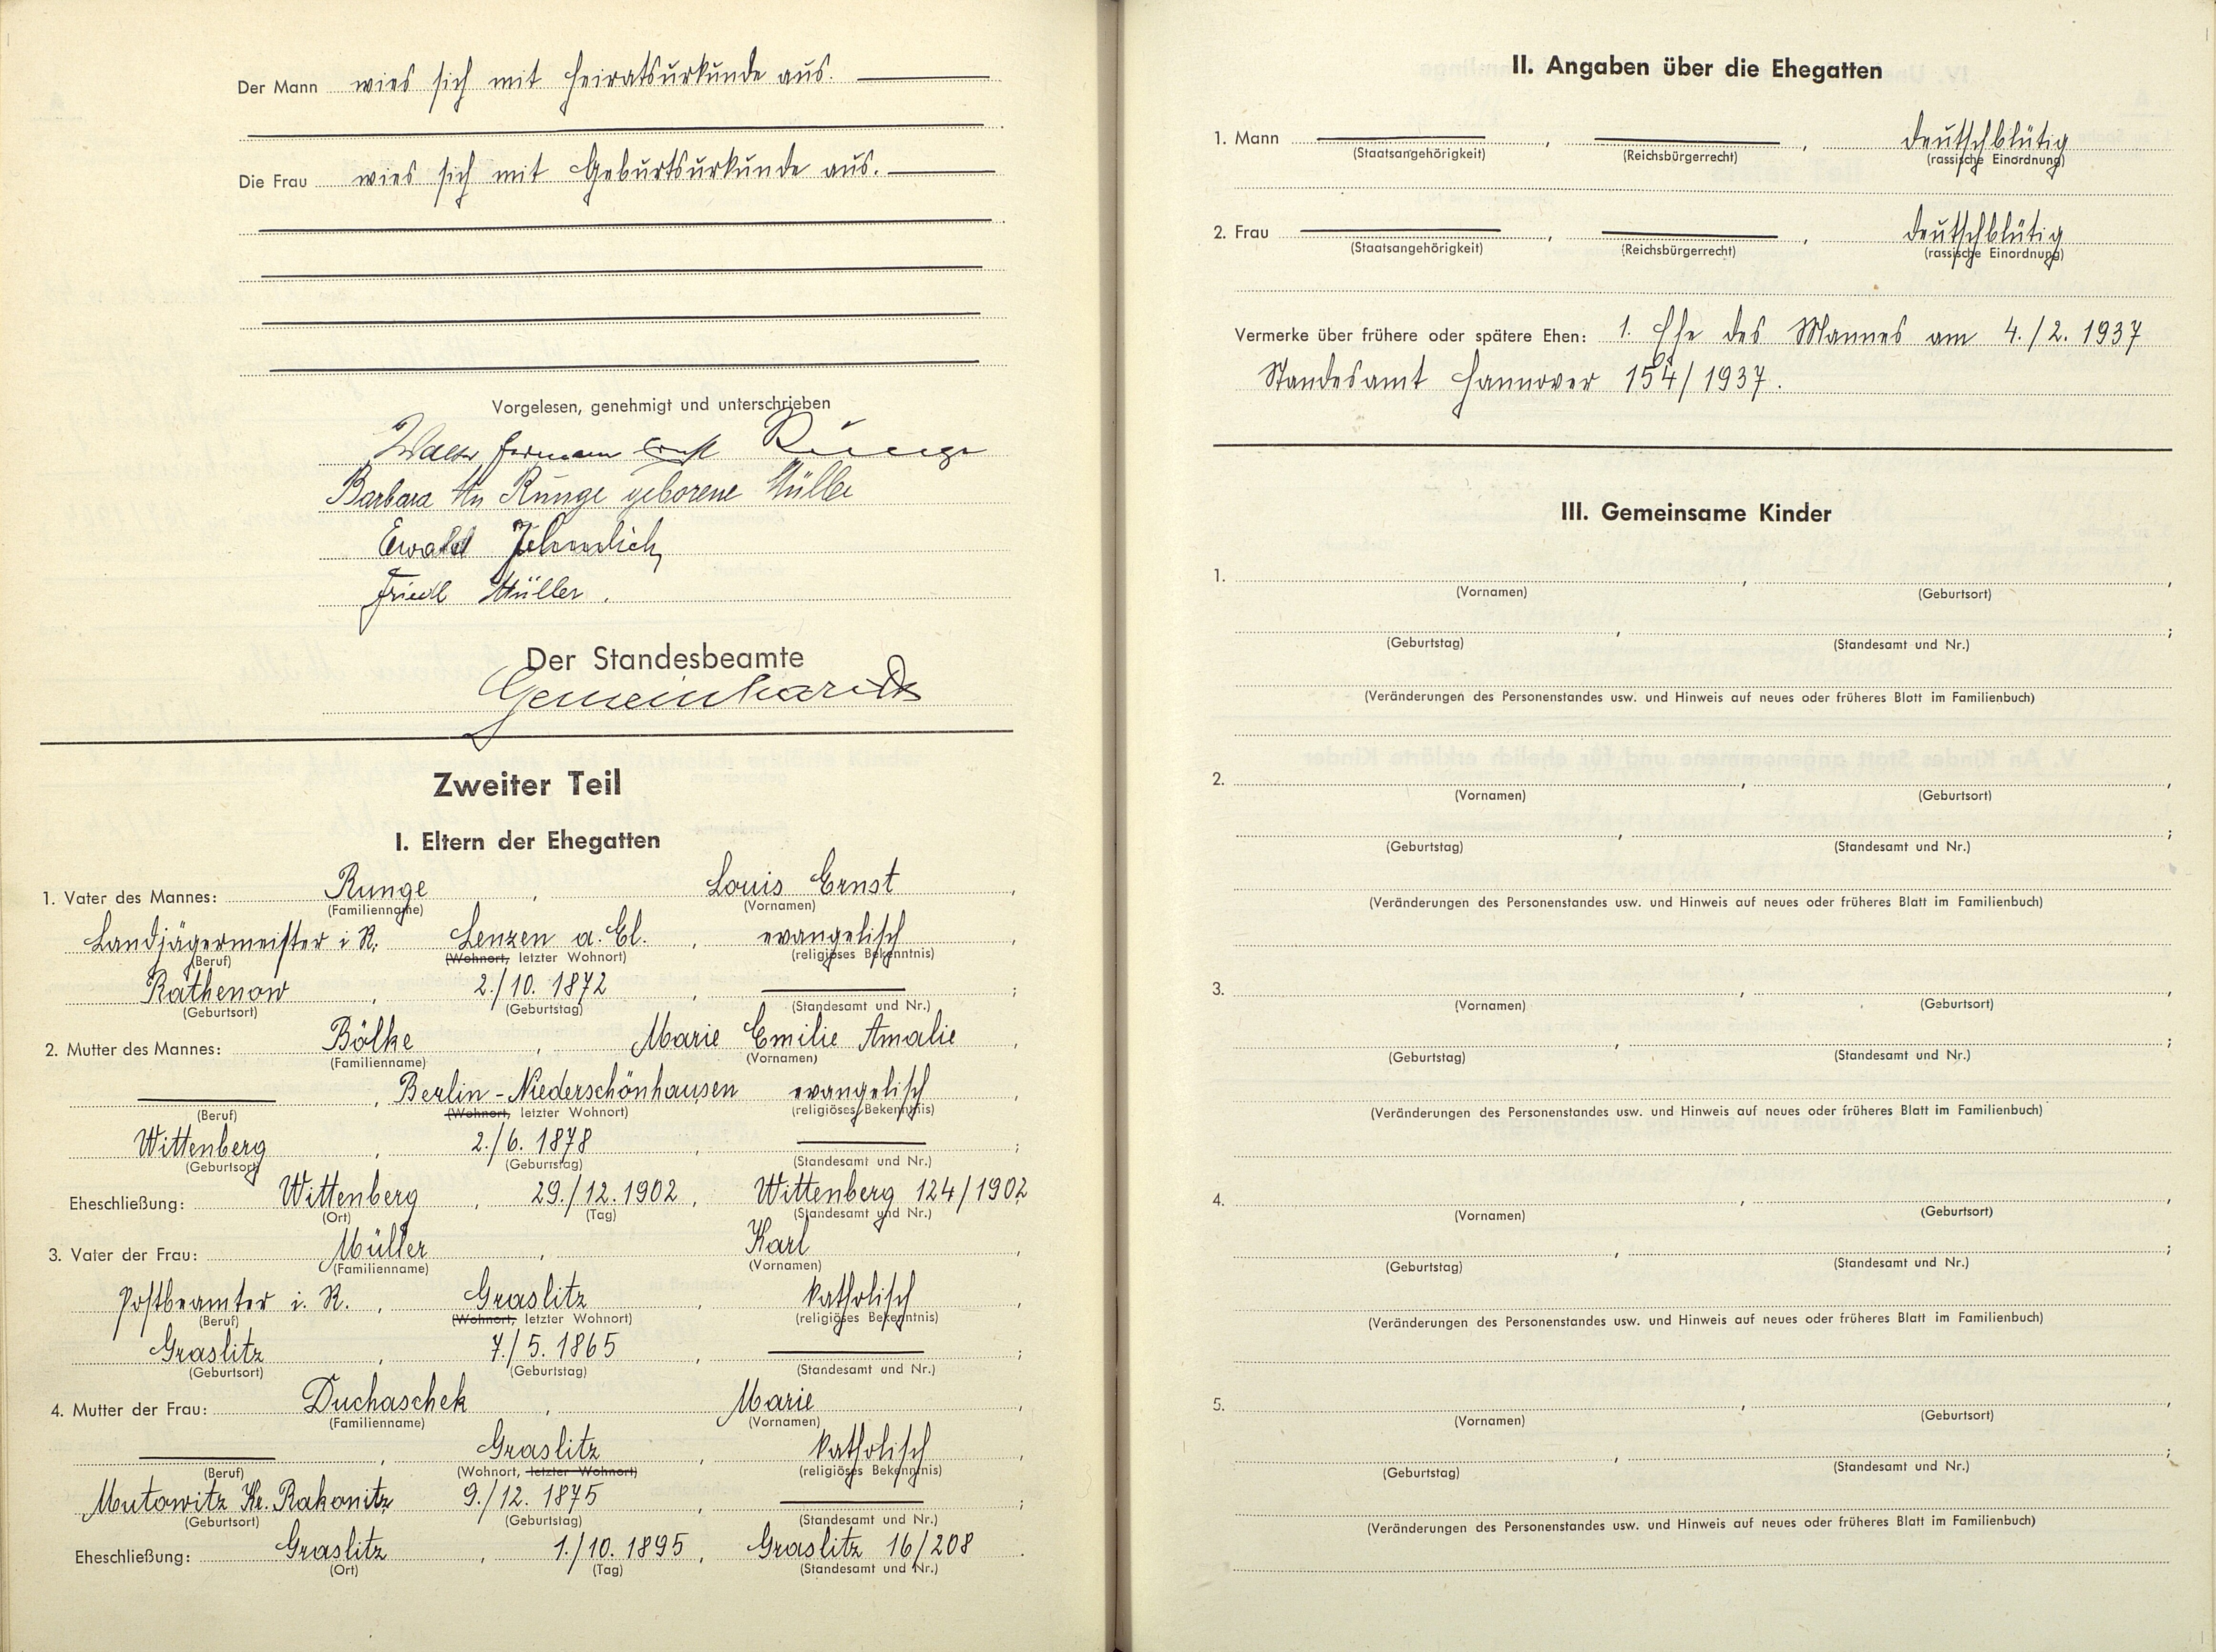 Der Mann wies sich mit Heiratsurkunde aus.
Die Frau wies sich mit Geburtsurkunde aus.
Vorgelesen, genehmigt und unterschrieben
Walter Hermann Ernst Runge
Barbara Runge geborene Müller
Ewald
Friedl Müller.
Der Standesbeamte
Gemeinhardt
Zweiter Teil
I. Eltern der Ehegatten
1. Vater des Mannes: Runge, Louis Ernst,
(Familienname) (Vornamen)
Landjägermeister i R. Lenzen a. El., evangelisch,
(Beruf) (Wohnort, letzter Wohnort) (religiöses Bekenntnis)
Rathenow, 2./10. 1872, ;
(Geburtsort) (Geburtstag) (Standesamt und Nr.)
2. Mutter des Mannes: Bölke, Marie Emilie Amalie,
(Familienname) (Vornamen)
, Berlin-Niederschönhausen evangelisch,
(Beruf) (Wohnort, letzter Wohnort) (religiöses Bekenntnis)
Wittenberg, 2./6. 1878, ;
(Geburtsort) (Geburtstag) (Standesamt und Nr.)
Eheschließung: Wittenberg, 29./12. 1902, Wittenberg 124/1902
(Ort) (Tag) (Standesamt und Nr.)
3. Vater der Frau: Müller, Karl,
(Familienname) (Vornamen)
Postbeamter i. R., Graslitz, katholisch,
(Beruf) (Wohnort, letzter Wohnort) (religiöses Bekenntnis)
Graslitz, 7./5. 1865, ;
(Geburtsort) (Geburtstag) (Standesamt und Nr.)
4. Mutter der Frau: Duchaschek, Marie,
(Familienname) (Vornamen)
, Graslitz, katholisch,
(Beruf) (Wohnort, letzter Wohnort) (religiöses Bekenntnis)
Mutowitz Kr. Rakonitz, 9./12. 1875, ;
(Geburtsort) (Geburtstag) (Standesamt und Nr.)
Eheschließung: Graslitz, 1./10. 1895, Graslitz 16/208.
(Ort) (Tag) (Standesamt und Nr.)
II. Angaben über die Ehegatten
1. Mann , , deutschblütig
(Staatsangehörigkeit) (Reichsbürgerrecht) (rassische Einordnung)
2. Frau , , deutschblütig
(Staatsangehörigkeit) (Reichsbürgerrecht) (rassische Einordnung)
Vermerke über frühere oder spätere Ehen: 1. Ehe des Mannes am 4./2. 1937
Standesamt Hannover 154/1937.
III. Gemeinsame Kinder
1. , ,
(Vornamen) (Geburtsort)
, ;
(Geburtstag) (Standesamt und Nr.)
(Veränderungen des Personenstandes usw. und Hinweis auf neues oder früheres Blatt im Familienbuch)
2. , ,
(Vornamen) (Geburtsort)
, ;
(Geburtstag) (Standesamt und Nr.)
(Veränderungen des Personenstandes usw. und Hinweis auf neues oder früheres Blatt im Familienbuch)
3. , ,
(Vornamen) (Geburtsort)
, ;
(Geburtstag) (Standesamt und Nr.)
(Veränderungen des Personenstandes usw. und Hinweis auf neues oder früheres Blatt im Familienbuch)
4. , ,
(Vornamen) (Geburtsort)
, ;
(Geburtstag) (Standesamt und Nr.)
(Veränderungen des Personenstandes usw. und Hinweis auf neues oder früheres Blatt im Familienbuch)
5. , ,
(Vornamen) (Geburtsort)
, ;
(Geburtstag) (Standesamt und Nr.)
(Veränderungen des Personenstandes usw. und Hinweis auf neues oder früheres Blatt im Familienbuch)